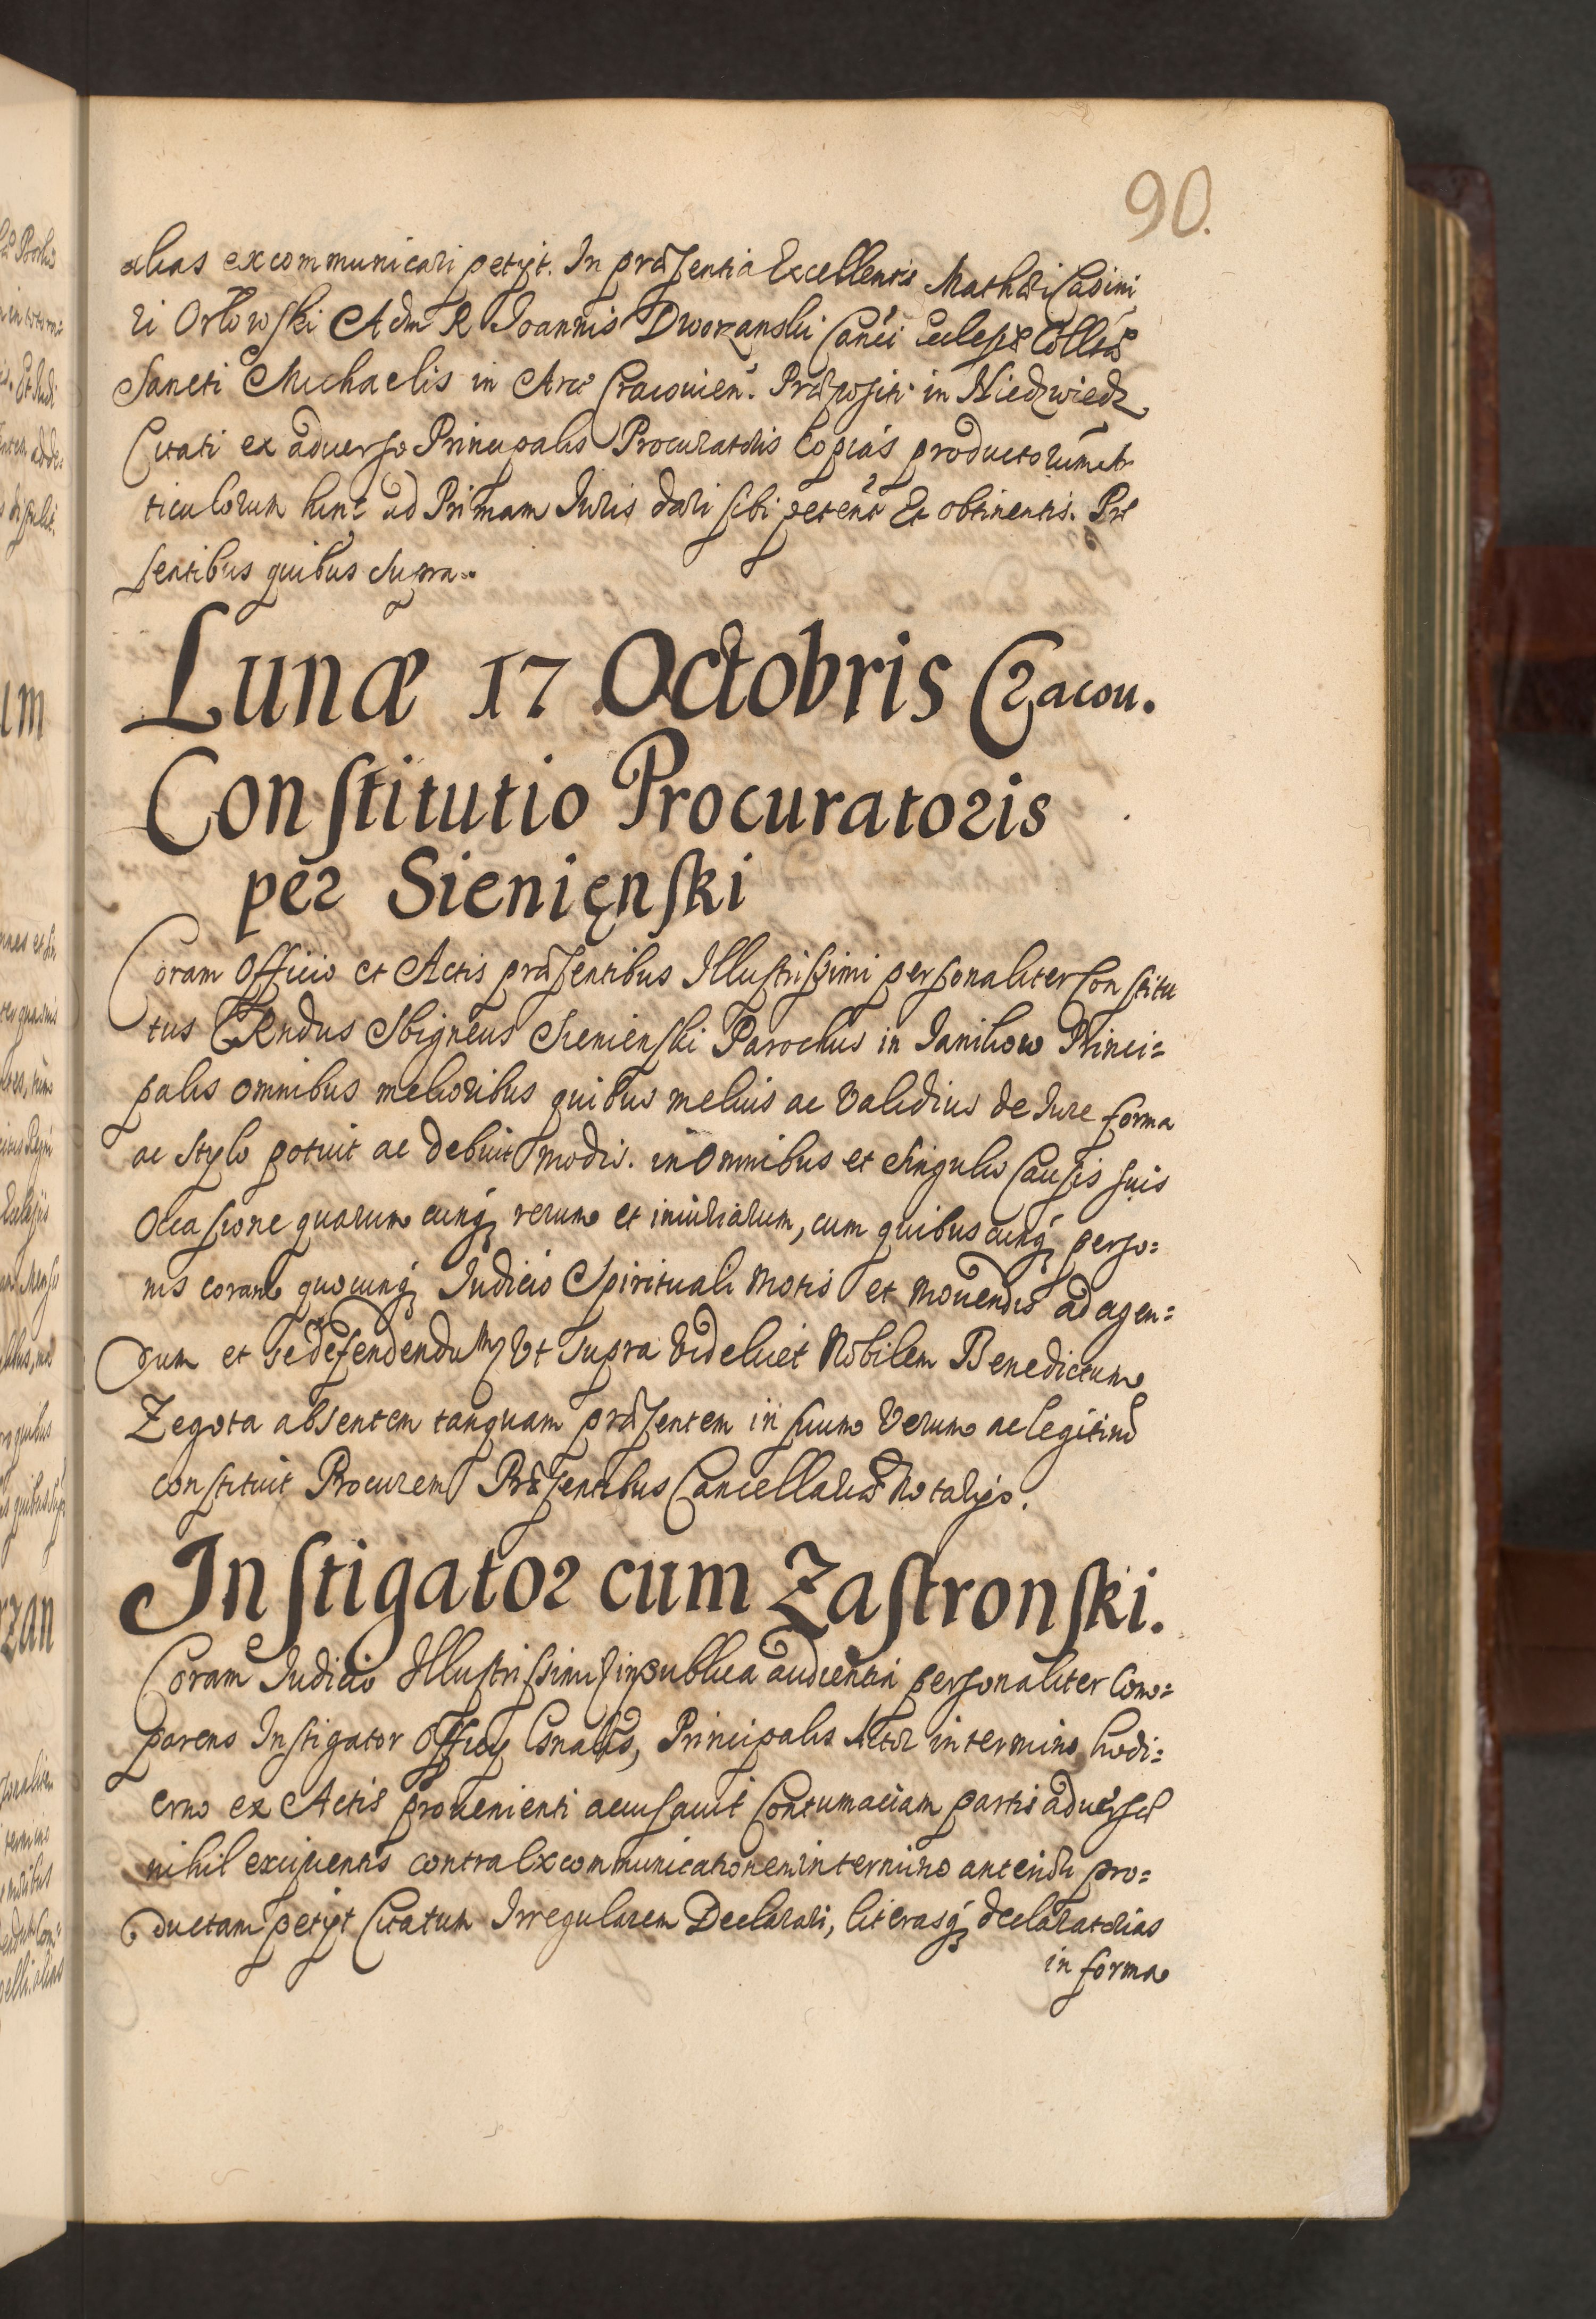 90.
alias excommunicari petyt. In præsentia Excellentis Mathæi Casimi
ri Orłowski Adm R Joannis Dworzanski Canci Eccleỹæ Collᵗæ
Sancti Michaelis in Arce Cracouien: Præpositi in Niedzwiedz
Citati ex aduerso Principalis Procuratoris Copias productorum Ar
ticulorum hinc ad Primam Juris dari sibi petent Et obtinentis. Præ
sentibus quibus supra.
Lunæ 17 Octobris Cracou.
Constitutio Procuratoris
per Sienięnski
Coram Officio et Actis præsentibus Illustrissimi personaliter Constitu
tus Rndus Sbigneus Sienienski Parochus in Janikow Princi=
palis omnibus melioribus quibus melius ac validius de Jure forma
ac stylo potuit ac debuit modis. in omnibus et singulis Causis suis
Occasione quarumcunq, rerum et iniuriarum, cum quibuscunq, perso=
nis coram quocunq, Judicio Spirituali motis et mouendis ad agen=
dum et se defendendum Vt supra videlicet Nobilem Benedictum
Zegota absentem tanquam præsentem in suum verum ac legitimũ
constituit Procurem Præsentibus Cancellariæ Notarijs.
Instigator cum Zastronski.
Coram Judicio Illustrissimi in publica audientia personaliter Com=
parens Instigator Officij Csnalis, Principalis Actor in termino hodi=
erno ex Actis prouenienti accusauit Contumaciam partis aduersæ
nihil excipientis contra Excommunicationem in termino antecedti pro=
ductam petyt Citatum Irregularem Declarari, literasq, declaratorias
in forma